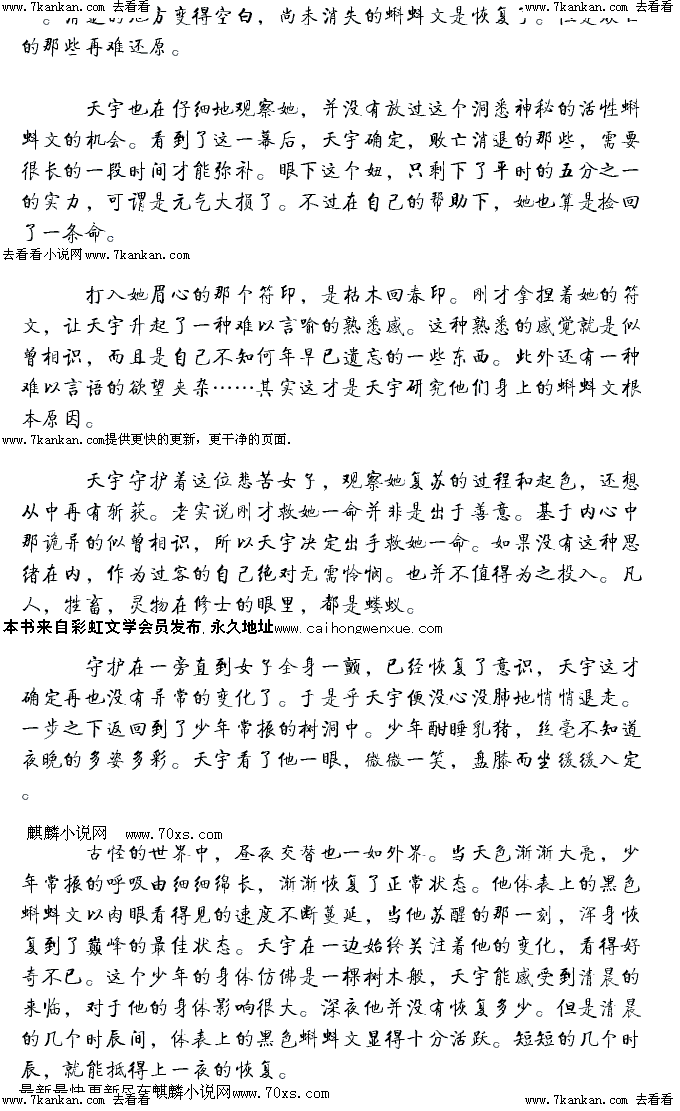 www.7kankan.com 去看看 www.7kankan.com 去看看 www.7kankan.com 去看看
方变得空白，尚未消失的蝌蚪文是恢复了。但是
的那些再难还原。
天宇也在仔细地观察她，并没有放过这个洞悉神秘的活性蝌
蚪文的机会。看到了这一幕后，天宇确定，败亡消退的那些，需要
很长的一段时间才能弥补。眼下这个妞，只剩下了平时的五分之一
的实力，可谓是元气大损了。不过在自己的帮助下，她也算是捡回
了一条命。
去看看小说网www.7kankan.com
打入她眉心的那个符印，是枯木回春印。刚才拿捏着她的符
文，让天宇升起了一种难以言喻的熟悉感。这种熟悉的感觉就是似
曾相识，而且是自己不知何年早已遗忘的一些东西。此外还有一种
难以言语的欲望夹杂……其实这才是天宇研究他们身上的蝌蚪文根
本原因。
www.7kankan.com提供更快的更新，更干净的页面.
天宇守护着这位悲苦女子，观察她复苏的过程和起色，还想
从中再有斩获。老实说刚才救她一命并非是出于善意。基于内心中
那诡异的似曾相识，所以天宇决定出手救她一命。如果没有这种思
绪在内，作为过客的自己绝对无需怜悯。也并不值得为之投入。凡
人，牲畜，灵物在修士的眼里，都是蝼蚁。
本书来自彩虹文学会员发布,永久地址www.caihongwenxue.com
守护在一旁直到女子全身一颤，已经恢复了意识，天宇这才
确定再也没有异常的变化了。于是乎天宇便没心没肺地悄悄退走。
一步之下返回到了少年常振的树洞中。少年酣睡乳猪，丝毫不知道
夜晚的多姿多彩。天宇看了他一眼，微微一笑，盘膝而坐缓缓入定
。
麒麟小说网 www.70xs.com
古怪的世界中，昼夜交替也一如外界。当天色渐渐大亮，少
年常振的呼吸由细细绵长，渐渐恢复了正常状态。他体表上的黑色
蝌蚪文以肉眼看得见的速度不断蔓延，当他苏醒的那一刻，浑身恢
复到了巅峰的最佳状态。天宇在一边始终关注着他的变化，看得好
奇不已。这个少年的身体仿佛是一棵树木般，天宇能感受到清晨的
来临，对于他的身体影响很大。深夜他并没有恢复多少。但是清晨
的几个时辰间，体表上的黑色蝌蚪文显得十分活跃。短短的几个时
辰，就能抵得上一夜的恢复。
最新最快更新尽在麒麟小说网www.70xs.com
www.7kankan.com 去看看 www.7kankan.com 去看看 www.7kankan.com 去看看